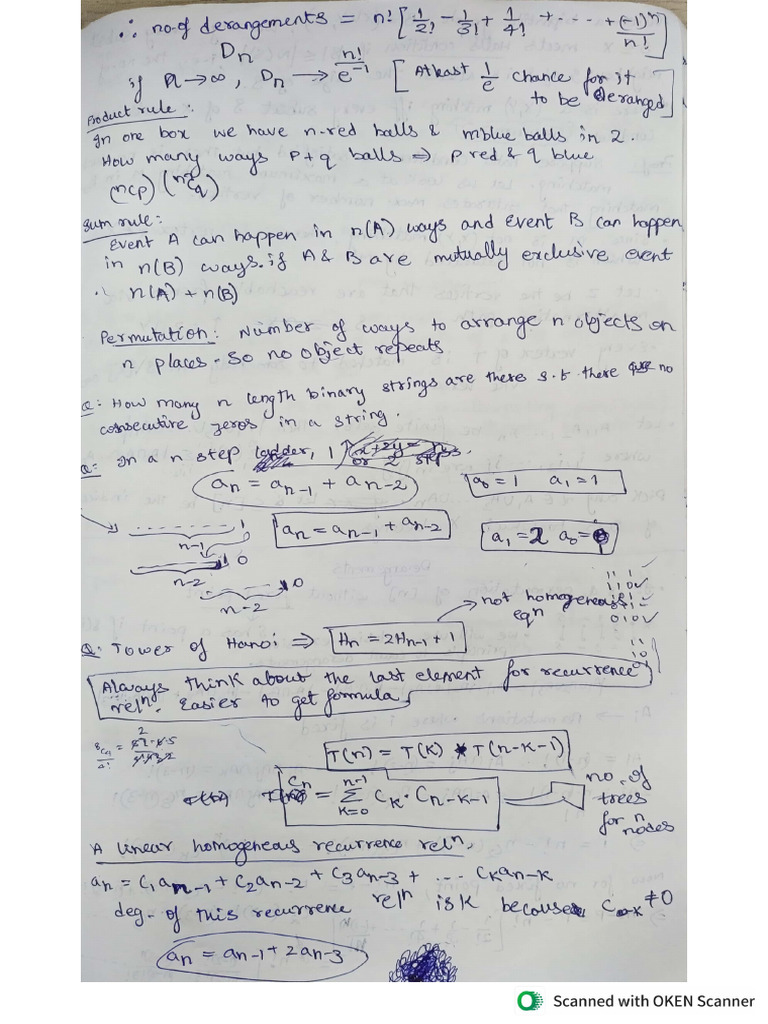 ∴ no.of derangements = n! [ 1/2! - 1/3! + 1/4! + ... + (-1)^n/n! ]
Dn
if n→∞, Dn → n!/e^-1 [ Atleast 1/e chance for it
to be deranged ]
Product rule:
In one box we have n-red balls & mblue balls in 2.
How many ways p+q balls ⇒ p red & q blue
(nCp) (mCq)
Sum rule:
Event A can happen in n(A) ways and Event B can happen
in n(B) ways. if A & B are mutually exclusive event
∴ n(A) + n(B)
Permutation: Number of ways to arrange n objects on
n places. So no object repeats
Q: How many n length binary strings are there s.t there are no
consecutive zeros in a string.
Q: In a n step ladder, 1 or 2 steps.
an = an-1 + an-2 a0 = 1 a1 = 1
1 an = an-1 + an-2 a1 = 2 a0 =
n-1
0
n-2
0
n-2
→ not homogeneous
eqn
11
110✓
010✓
10
Q: Tower of Hanoi ⇒ Hn = 2Hn-1 + 1
Always think about the last element for recurrence
reln. Easier to get formula
T(n) = T(k) * T(n-k-1)
Cn = n-1 Σ k=0 Ck · Cn-k-1
no. of
trees
for n
nodes
A linear homogeneous recurrence reln.
an = C1an-1 + C2an-2 + C3an-3 + ... Ckan-k
deg. of this recurrence reln is k because C k ≠ 0
an = an-1 + 2an-3
Scanned with OKEN Scanner